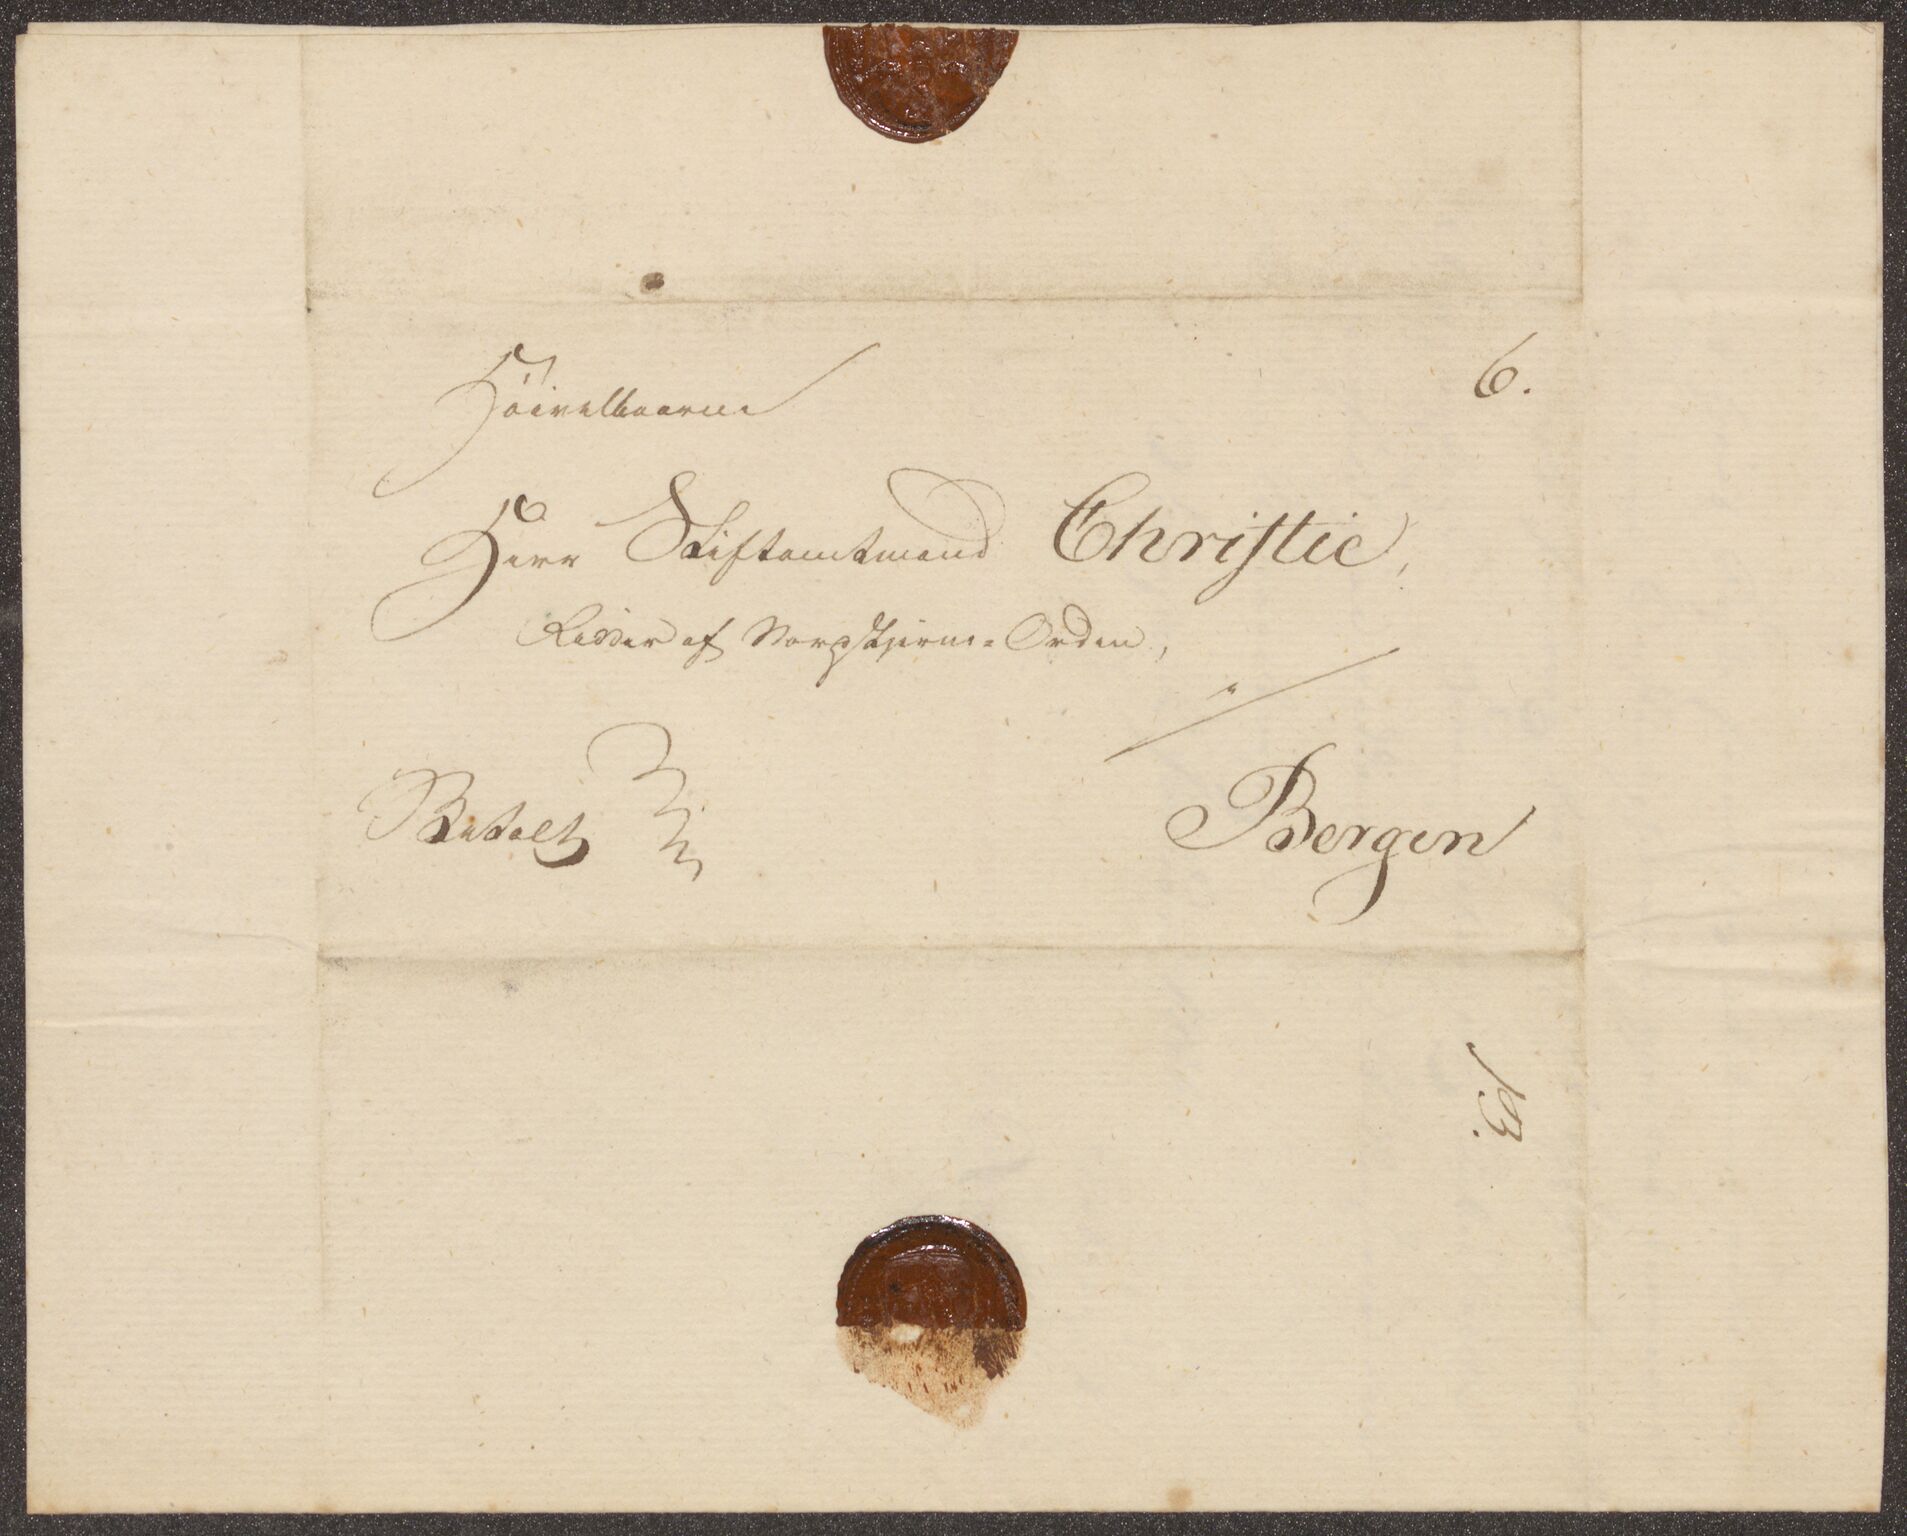 6.
Höivelbaarne
Herr Stiftamtmand Christie,
Ridder af Nordstjerne-Orden,
Betalt
Bergen